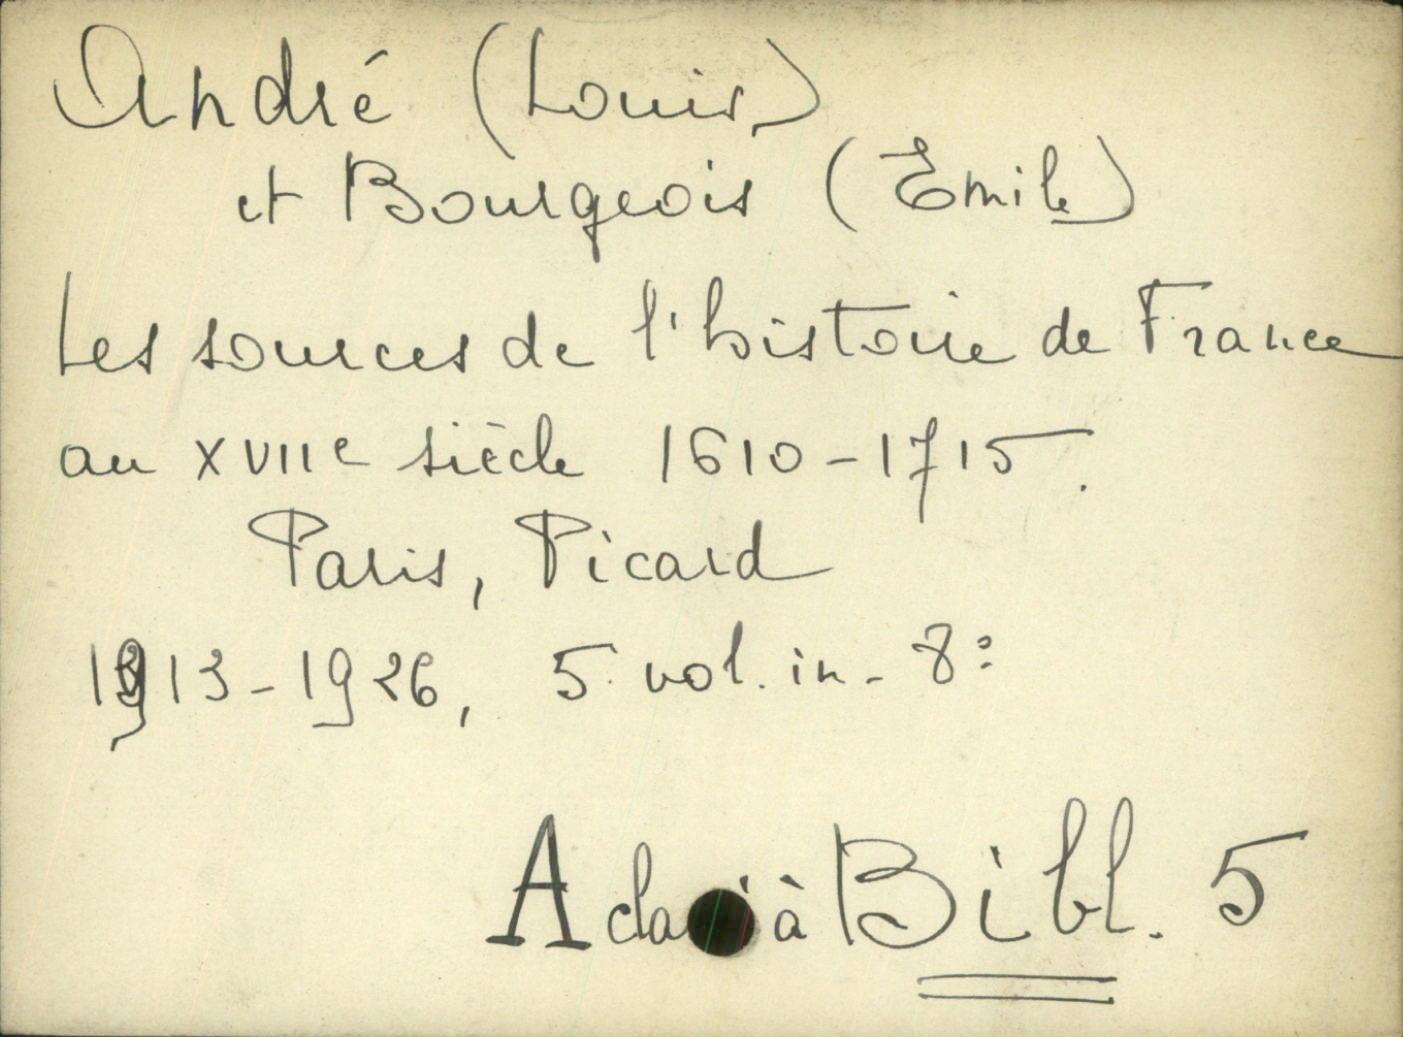 André (Louis)
et Bourgeois (Emile)
Les sources de l'histoire de France
au XVIIe siècle 1610-1715.
Paris, Picard
1913-1926, 5 vol. in-8º
A cla à Bibl. 5